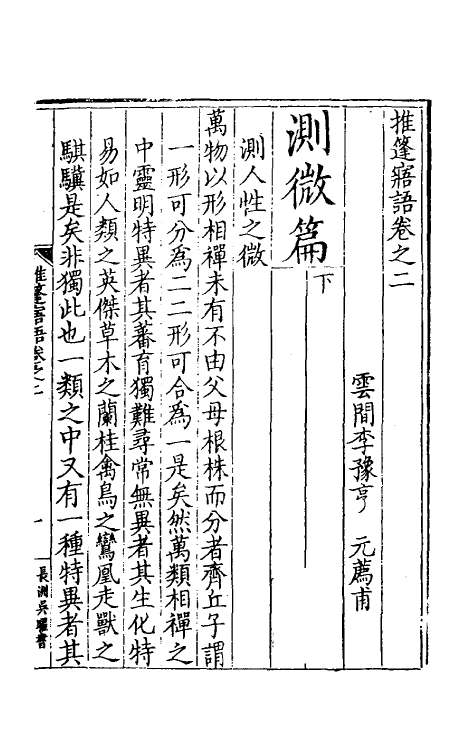 推篷寤語卷之二
雲間李豫亨　元薦甫
測微篇下
測人性之微
萬物以形相禪未有不由父母根株而分者齊丘子謂
一形可分爲二二形可合爲一是矣然萬類相禪之
中靈明特異者其蕃育獨難尋常無異者其生化特
易如人類之英傑草木之蘭桂禽鳥之鸞凰走獸之
騏驥是矣非獨此也一類之中又有一種特異者其
推篷寤語卷之二　一　長洲吳曜書